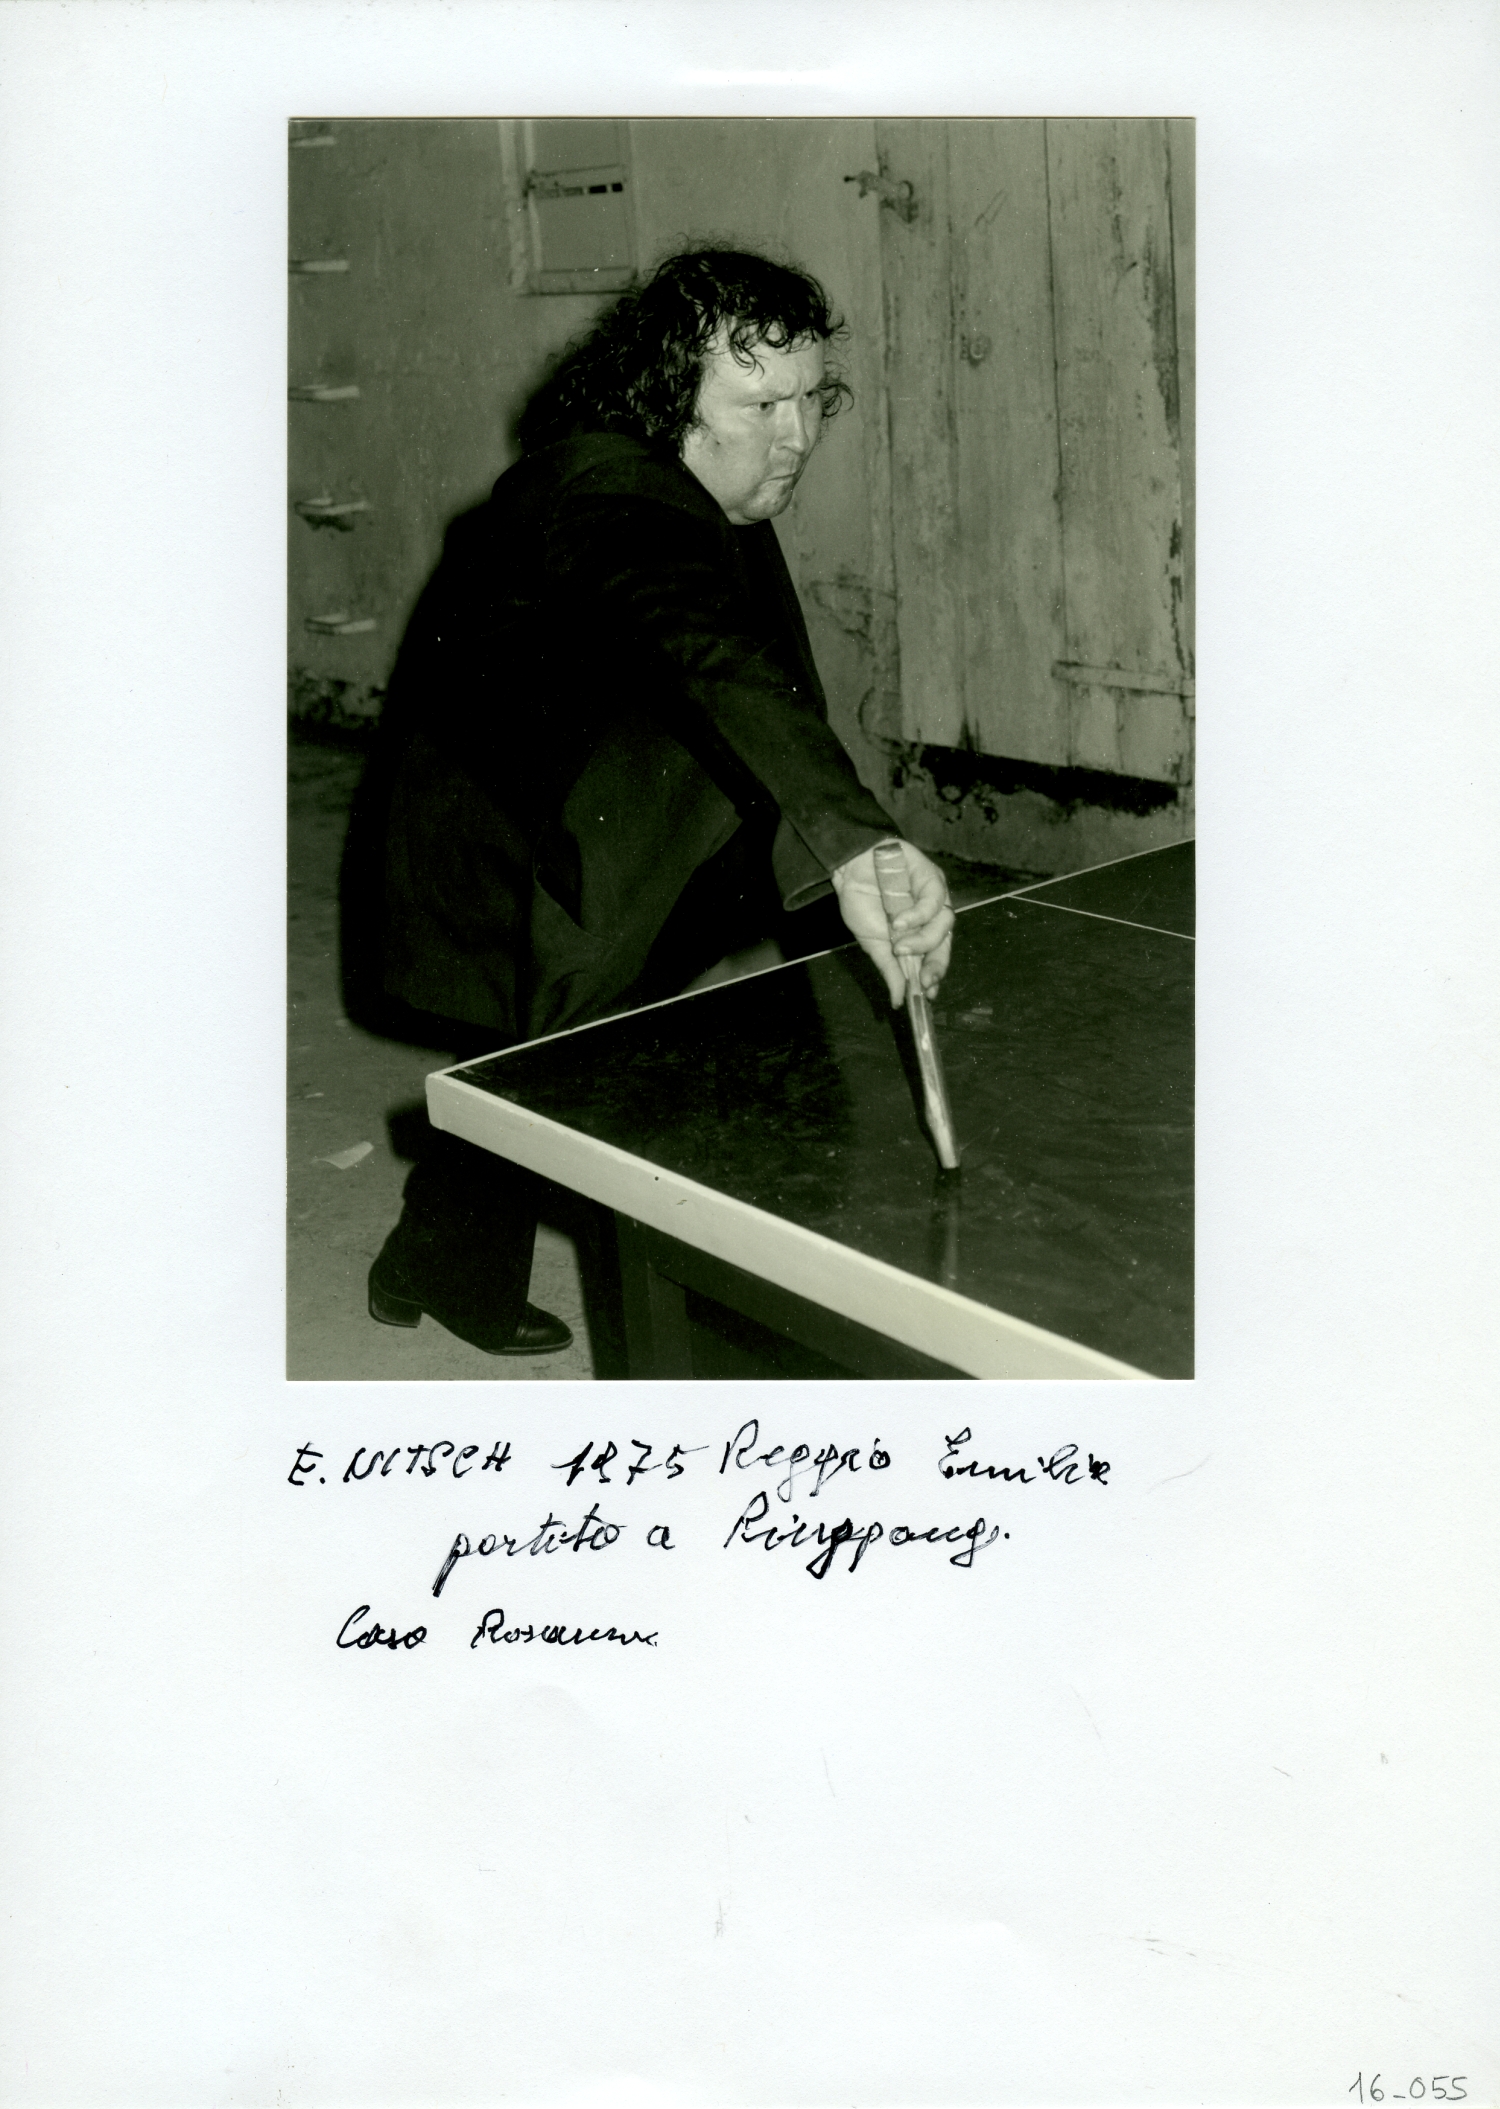 E. NITSCH 1975 Reggio Emilia
partita a Pingpong.
Casa Rosanna
16_055